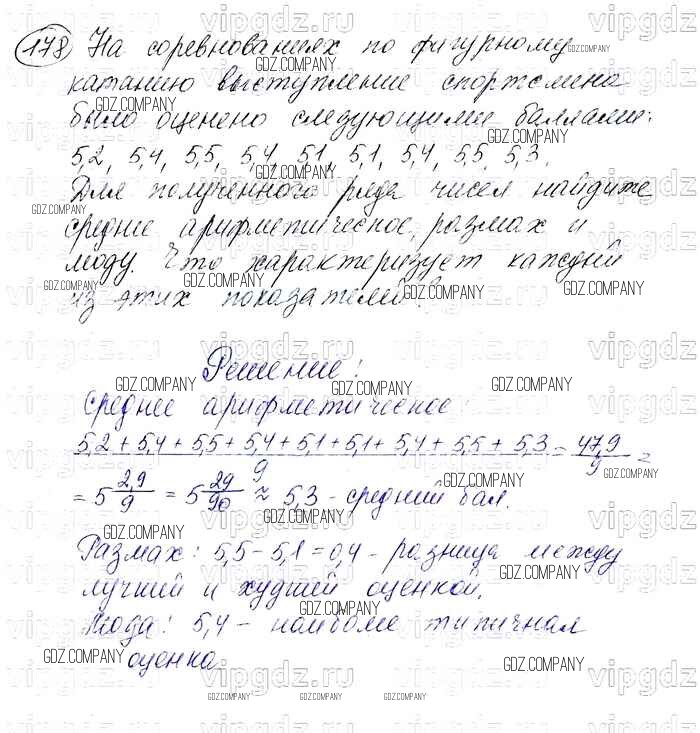 178 На соревнованиях по фигурному
катанию выступление спортсмена
было оценено следующими баллами:
5,2, 5,4, 5,5, 5,4, 5,1, 5,1, 5,4, 5,5, 5,3.
Для полученного ряда чисел найдите
среднее арифметическое, размах и
моду. Что характеризует каждый
из этих показателей?
Решение:
Среднее арифметическое:
5,2 + 5,4 + 5,5 + 5,4 + 5,1 + 5,1 + 5,4 + 5,5 + 5,3 / 9 = 47,9 / 9 =
= 5 2,9/9 = 5 29/90 ≈ 5,3 - средний бал.
Размах: 5,5 - 5,1 = 0,4 - разница между
лучшей и худшей оценкой.
Мода: 5,4 - наиболее типичная
оценка
vipgdz.ru
GDZ.COMPANY